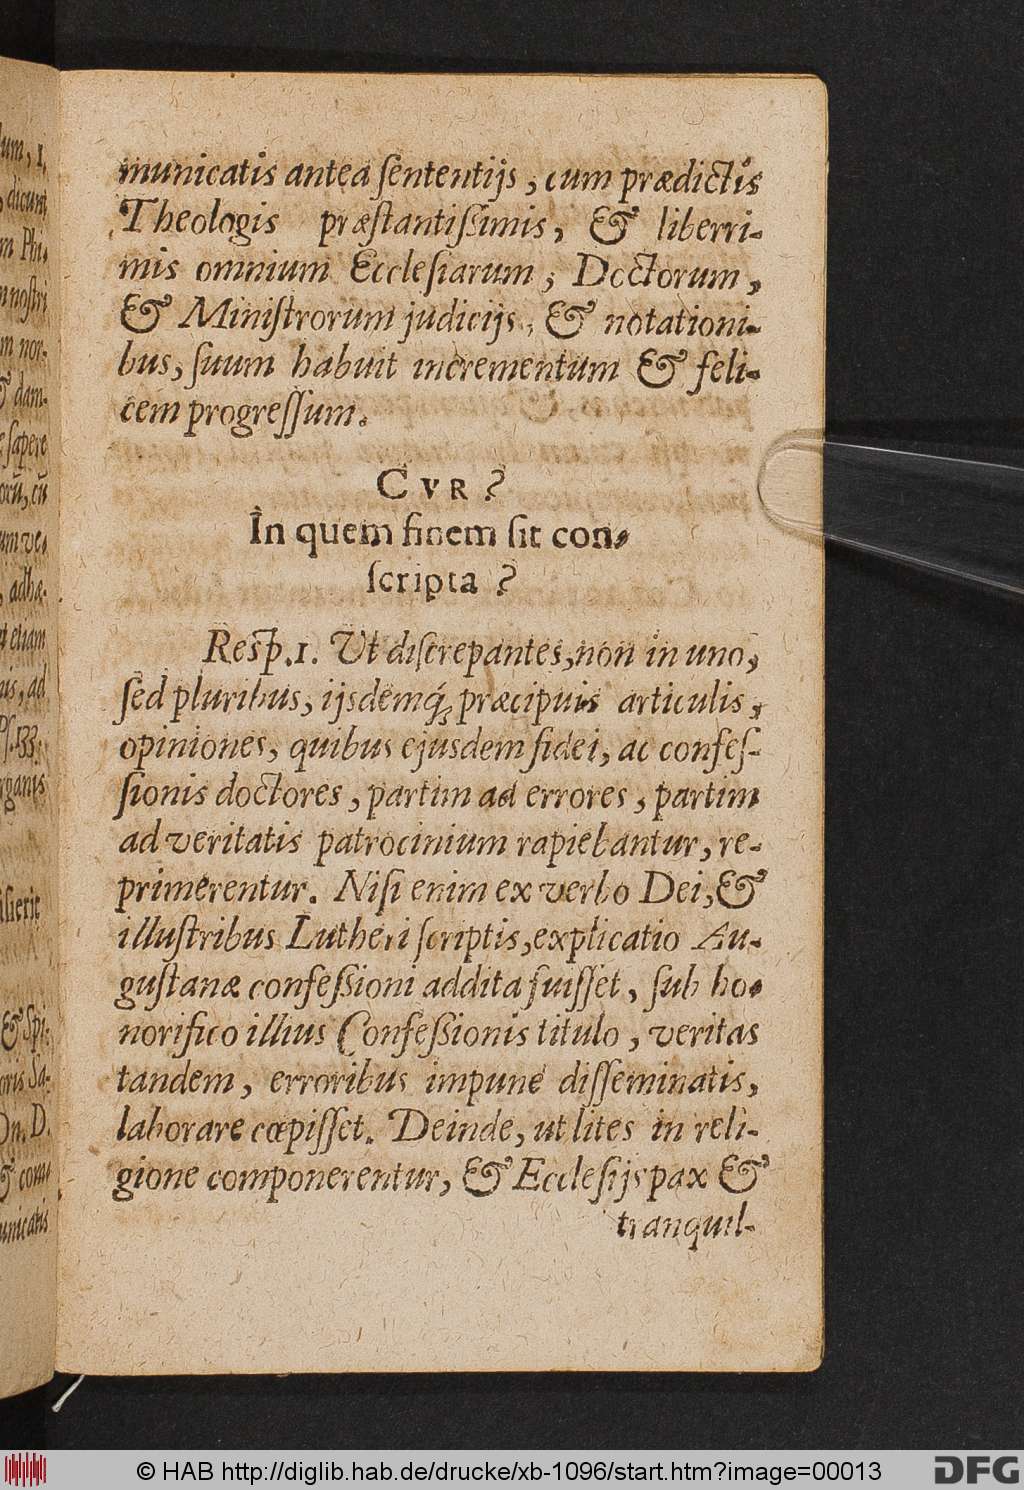 municatis antea sententijs, cum prædictis
Theologis præstantissimis, & liberri-
mis omnium Ecclesiarum, Doctorum,
& Ministrorum judicijs, & notationi-
bus, suum habuit incrementum & feli-
cem progressum.
CVR?
In quem finem sit con-
scripta?
Resp. 1. Ut discrepantes, non in uno,
sed pluribus, ijsdemq́; præcipuis articulis,
opiniones, quibus ejusdem fidei, ac confes-
sionis doctores, partim ad errores, partim
ad veritatis patrocinium rapiebantur, re-
primerentur. Nisi enim ex verbo Dei, &
illustribus Lutheri scriptis, explicatio Au-
gustanæ confessioni addita fuisset, sub ho-
norifico illius Confessionis titulo, veritas
tandem, erroribus impunè disseminatis,
laborare cœpisset. Deinde, ut lites in reli-
gione componerentur, & Ecclesijs pax &
tranquil-
dicunt
nostri
& dam-
sapere
etiam
Ps. 133.
& Spi-
Dn. D.
© HAB http://diglib.hab.de/drucke/xb-1096/start.htm?image=00013
DFG